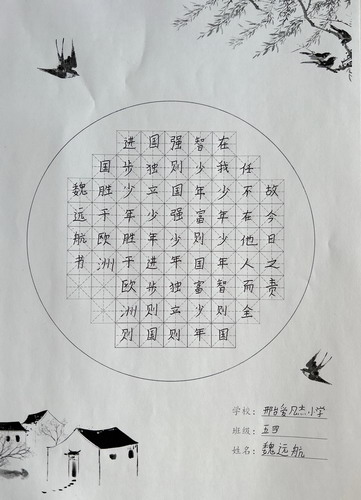 故今日之责
任不在他人而全
在我少年少年智则国
智少年富则国富少年
强则国强少年独立则
国独立少年进步则国
进步少年胜于欧洲则
国胜于欧洲
魏远航书
学校：小学
班级：五四
姓名：魏远航